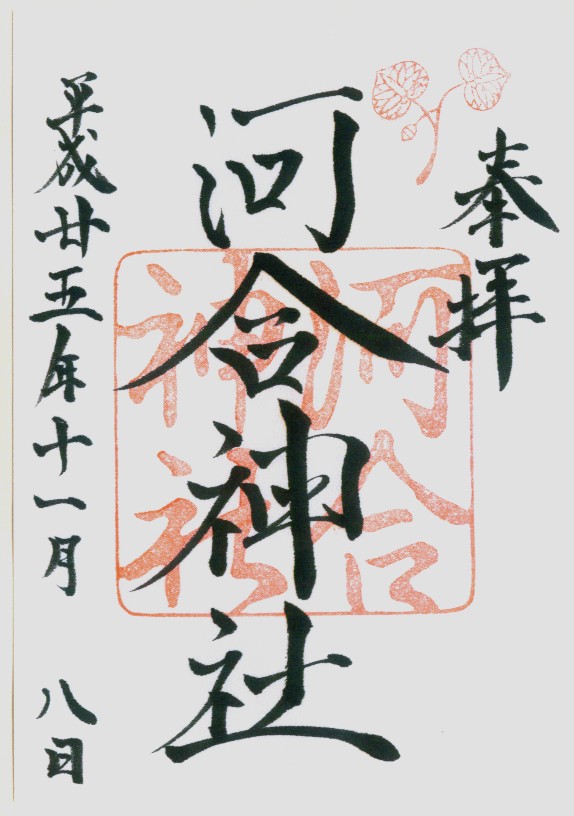 奉拝
河合神社
河合
神社
平成廿五年十一月 八日